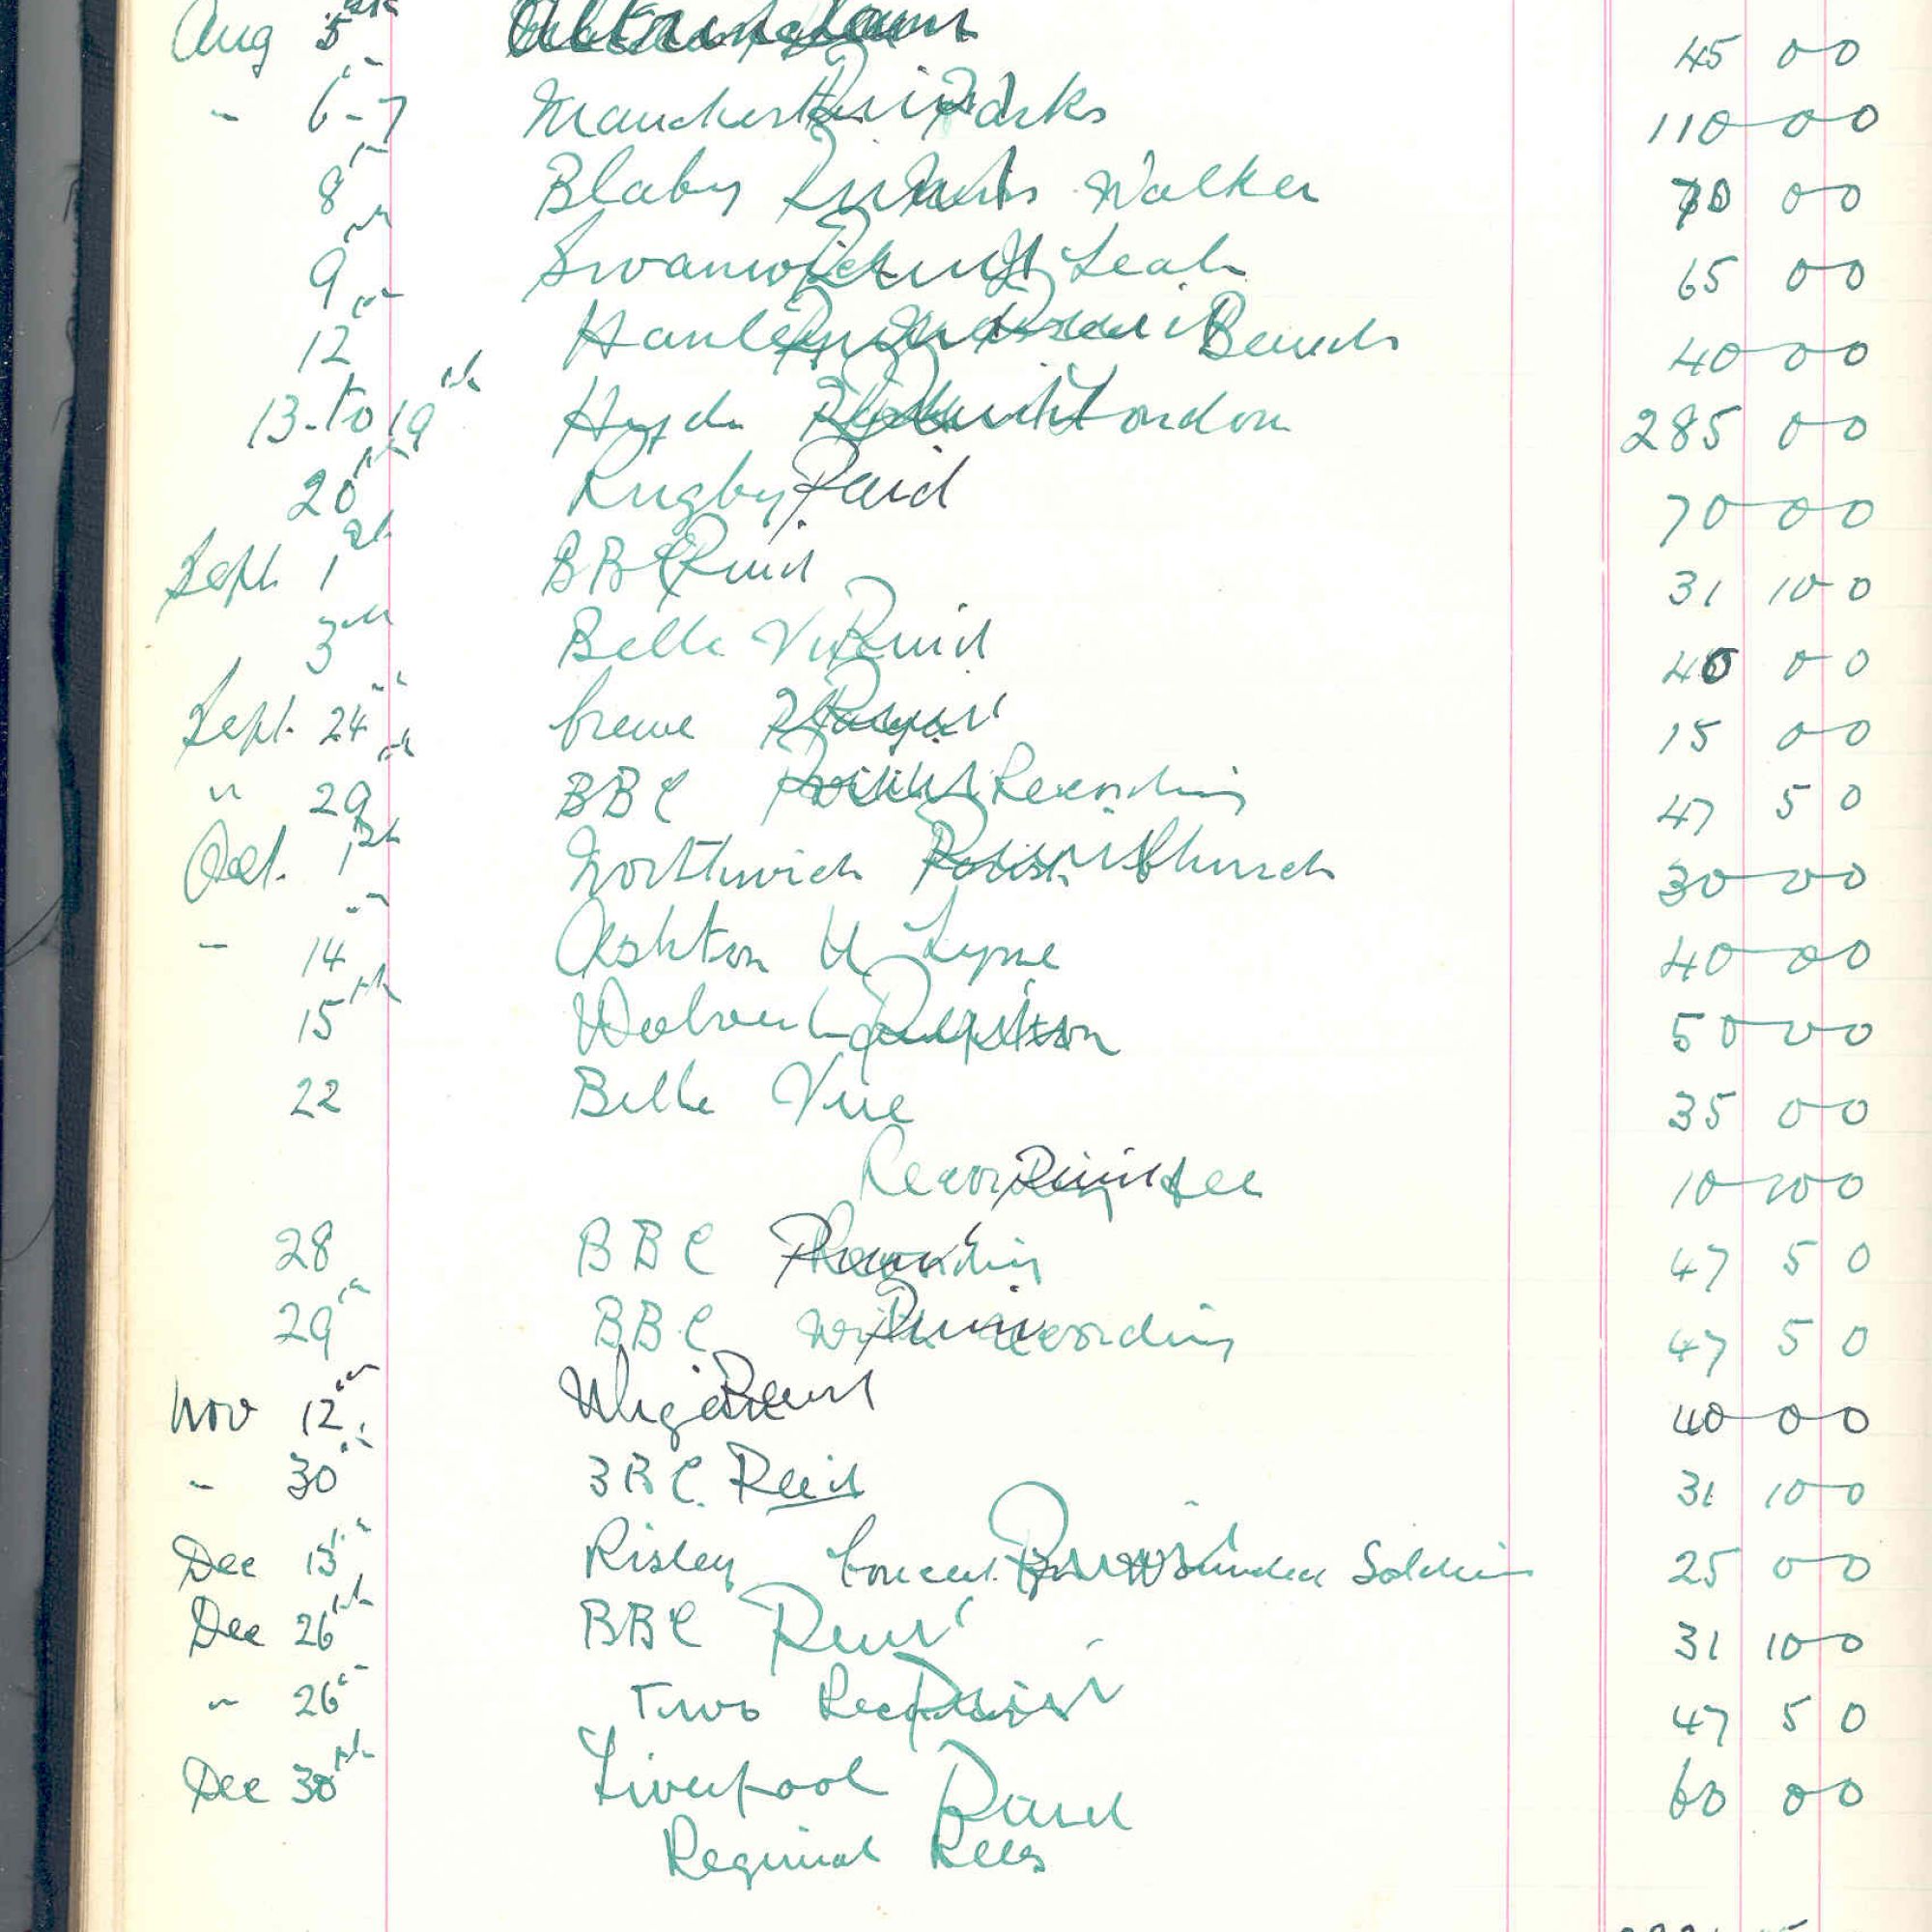 Aug 5th 45 0 0
- 6-7 Manchester Parks Paid 110 0 0
8th Blaby Walker Paid 70 0 0
9th Swanwick Leah Paid 65 0 0
12th Hanley Paid 40 0 0
13 to 19th Hyde Park London Paid 285 0 0
20th Rugby Paid 70 0 0
Sept. 1st BBC Paid 31 10 0
3rd Belle Vue Paid 40 0 0
Sept. 24th Crewe Paid 15 0 0
" 29th BBC Recording Paid 47 5 0
Oct. 1st Northwich Parish Church Paid 30 0 0
- 14th Ashton U Lyne 40 0 0
15th Wolverhampton Paid 50 0 0
22 Belle Vue 35 0 0
Recording fee Paid 10 10 0
28 BBC Recording Paid 47 5 0
29th BBC with recording Paid 47 5 0
Nov 12th Wigan Paid 40 0 0
- 30th BBC Paid 31 10 0
Dec 15th Risley Concert for Wounded Soldiers Paid 25 0 0
Dec 26th BBC Paid 31 10 0
" 26th Two Paid 47 5 0
Dec 30th Liverpool Paid 60 0 0
Reginal Rees